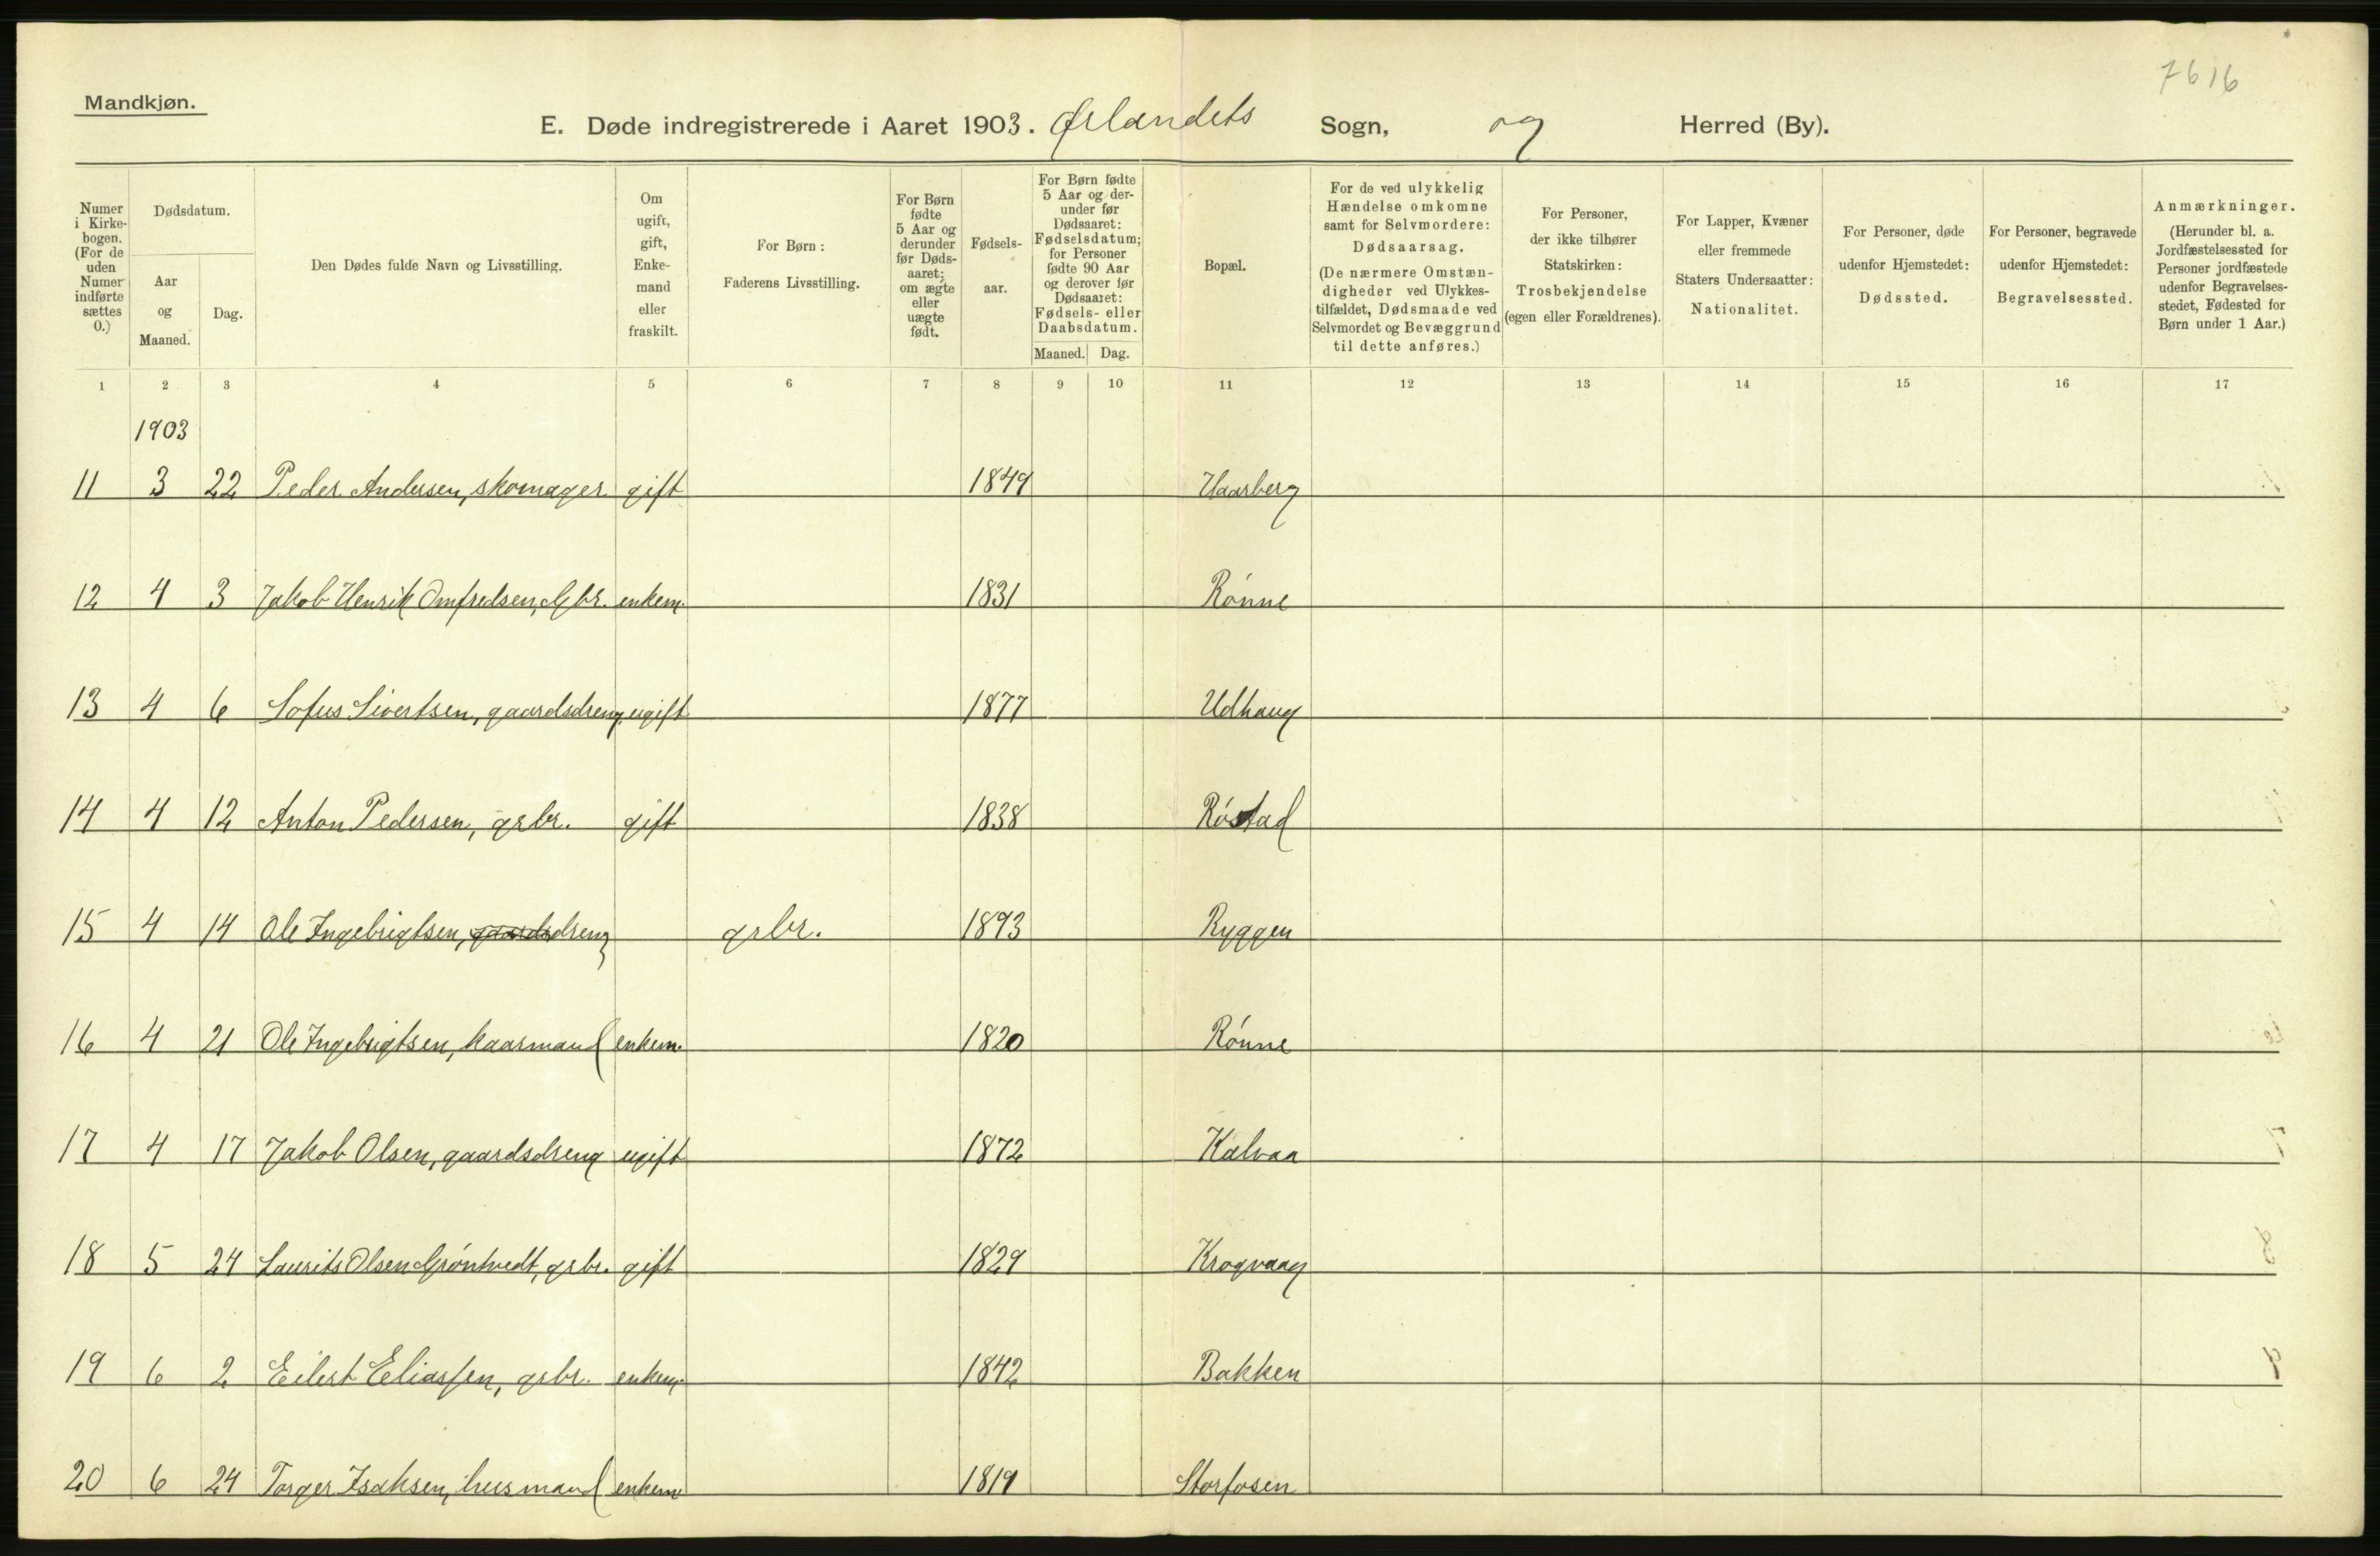 7616
Mandkjøn.
E. Døde indregistrerede i Aaret 1903. Ørlandets Sogn, og Herred (By).
Numer i Kirkebogen. (For de uden Numer indførte sættes 0.)
Dødsdatum.
Aar og Maaned.
Dag.
Den Dødes fulde Navn og Livsstilling.
Om ugift, gift, Enkemand eller fraskilt.
For Børn: Faderens Livsstilling.
For Børn fødte 5 Aar og derunder før Dødsaaret: om ægte eller uægte født.
Fødselsaar.
For Børn fødte 5 Aar og derunder før Dødsaaret: Fødselsdatum; for Personer fødte 90 Aar og derover før Dødsaaret: Fødsels- eller Daabsdatum.
Maaned. Dag.
Bopæl.
For de ved ulykkelig Hændelse omkomne samt for Selvmordere: Dødsaarsag. (De nærmere Omstændigheder ved Ulykkestilfældet, Dødsmaade ved Selvmordet og Bevæggrund til dette anføres.)
For Personer, der ikke tilhører Statskirken: Trosbekjendelse (egen eller Forældrenes).
For Lapper, Kvæner eller fremmede Staters Undersaatter: Nationalitet.
For Personer, døde udenfor Hjemstedet: Dødssted.
For Personer, begravede udenfor Hjemstedet: Begravelsessted.
Anmærkninger. (Herunder bl. a. Jordfæstelsessted for Personer jordfæstede udenfor Begravelsesstedet, Fødested for Børn under 1 Aar.)
1 2 3 4 5 6 7 8 9 10 11 12 13 14 15 16 17
1903
11 3 22 Peder Andersen, skomager gift 1849 Haarberg
12 4 3 Jakob Henrik Omfredsen, Gbr. enkem. 1831 Rónne
13 4 6 Sofus Sivertsen, gaardsdreng, ugift 1877 Udhaug
14 4 12 Anton Pedersen, grbr. gift 1838 Róstad
15 4 14 Ole Ingebrigtsen, gaardsdreng grbr. 1893 Ryggen
16 4 21 Ole Ingebrigtsen, kaarmand enkem. 1820 Rónne
17 4 17 Jakob Olsen, gaardsdreng ugift 1872 Kalvaa
18 5 24 Laurits Olsen Gróntvedt, grbr. gift 1829 Krogvaag
19 6 2 Eilert Eliassen, grbr. enkem. 1842 Bakken
20 6 24 Torger Isaksen, husmand enkem 1819 Storfosen